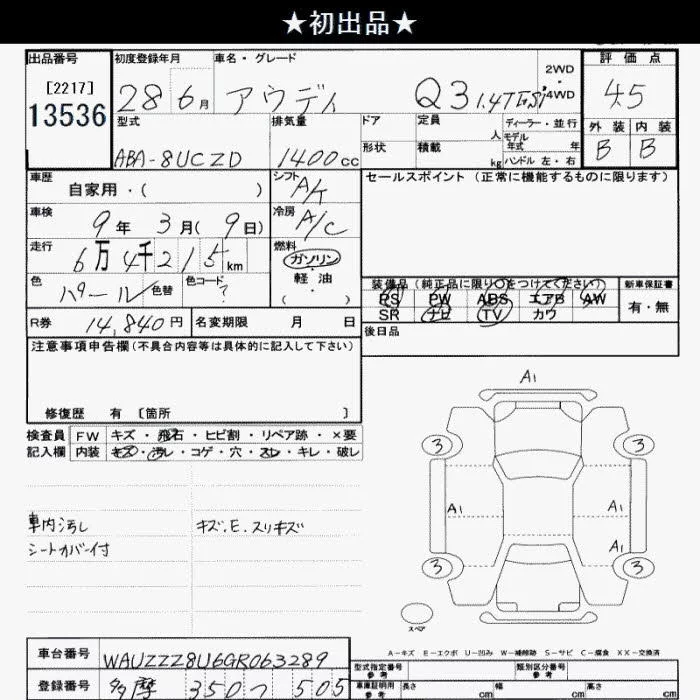 ★初出品★
出品番号 初度登録年月 車名・グレード 2WD・4WD 評価点
[2217]
13536
28 6月 アウディ Q3 1.4TFSI 4.5
型式 排気量 ドア 定員 人 ディーラー・並行 外装 内装
ABA-8UCZD 1400cc 形状 積載 kg モデル年式 年 ハンドル 左・右 B B
車歴 自家用・( ) シフト A/
セールスポイント (正常に機能するものに限ります)
車検 9年 3月(9日) 冷房 A/C
走行 6万4千215km 燃料 ガソリン
軽・油
( )
色 パール 色替 色コード ?
装備品(純正品に限り○をつけてください) 新車保証書
PS PW ABS エアB AW 有・無
SR ナビ TV カワ
R券 14,840円 名変期限 月 日
後日品
注意事項申告欄(不具合内容等は具体的に記入して下さい)
修復歴 有 [箇所 ]
検査員 FW キズ・飛石・ヒビ割・リペア跡・×要
記入欄 内装 キズ・汚レ・コゲ・穴・スレ・キレ・破レ
車内汚し キズ.E.スリキズ
シートカバー付
A1
3 3
A1 A1
A1
3 3
スペア
A-キズ E-エクボ U-凹み W-補修跡 S-サビ C-腐食 XX-交換済
車台番号 WAUZZZ8U6GR063289
登録番号 多摩 350 つ 505
型式指定番号 参考 類別区分番号 参考
車庫証明用 参考 長さ cm 幅 cm 高さ cm